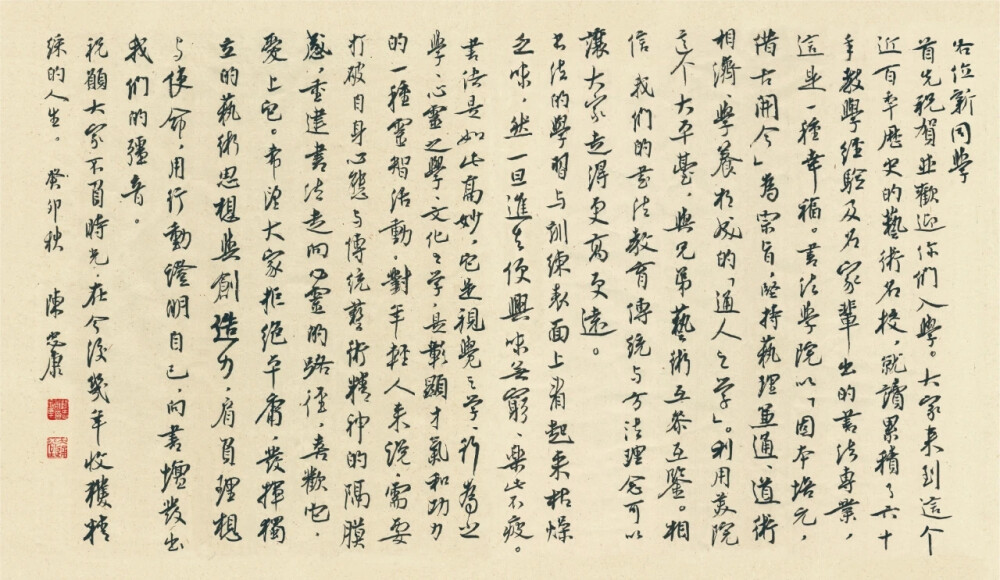 各位新同学
首先祝贺並歡迎你们入學。大家来到這个
近百年歷史的藝術名校，就讀累積了六十
年教學經驗及名家輩出的書法專業，
這是一種幸福。書法學院以「固本培元，
借古開今」為宗旨，堅持藝理並通、道術
相濟、學養相成的「通人之學」。利用美院
這个大平臺，與兄弟藝術互参互鑒。相
信我们的書法教育傳統与方法理念可以
讓大家走得更高更遠。
书法的學習与訓練表面上看起来枯燥
乏味，然一旦進去便興味無窮、樂此不疲。
書法是如此高妙，它是視覺之學、行為之
學、心靈之學、文化之學，是彰顯才氣和功力
的一種靈智活動。對年輕人来説，需要
打破自身心態与傳統藝術精神的隔膜
感，重建書法走向心靈的路徑，喜歡它，
愛上它。希望大家拒绝平庸，發揮獨
立的藝術思想與創造力，肩負理想
与使命，用行動證明自己，向書壇发出
我们的彊音。
祝願大家不負時光，在今後幾年收穫精
綵的人生。 癸卯秋 陳